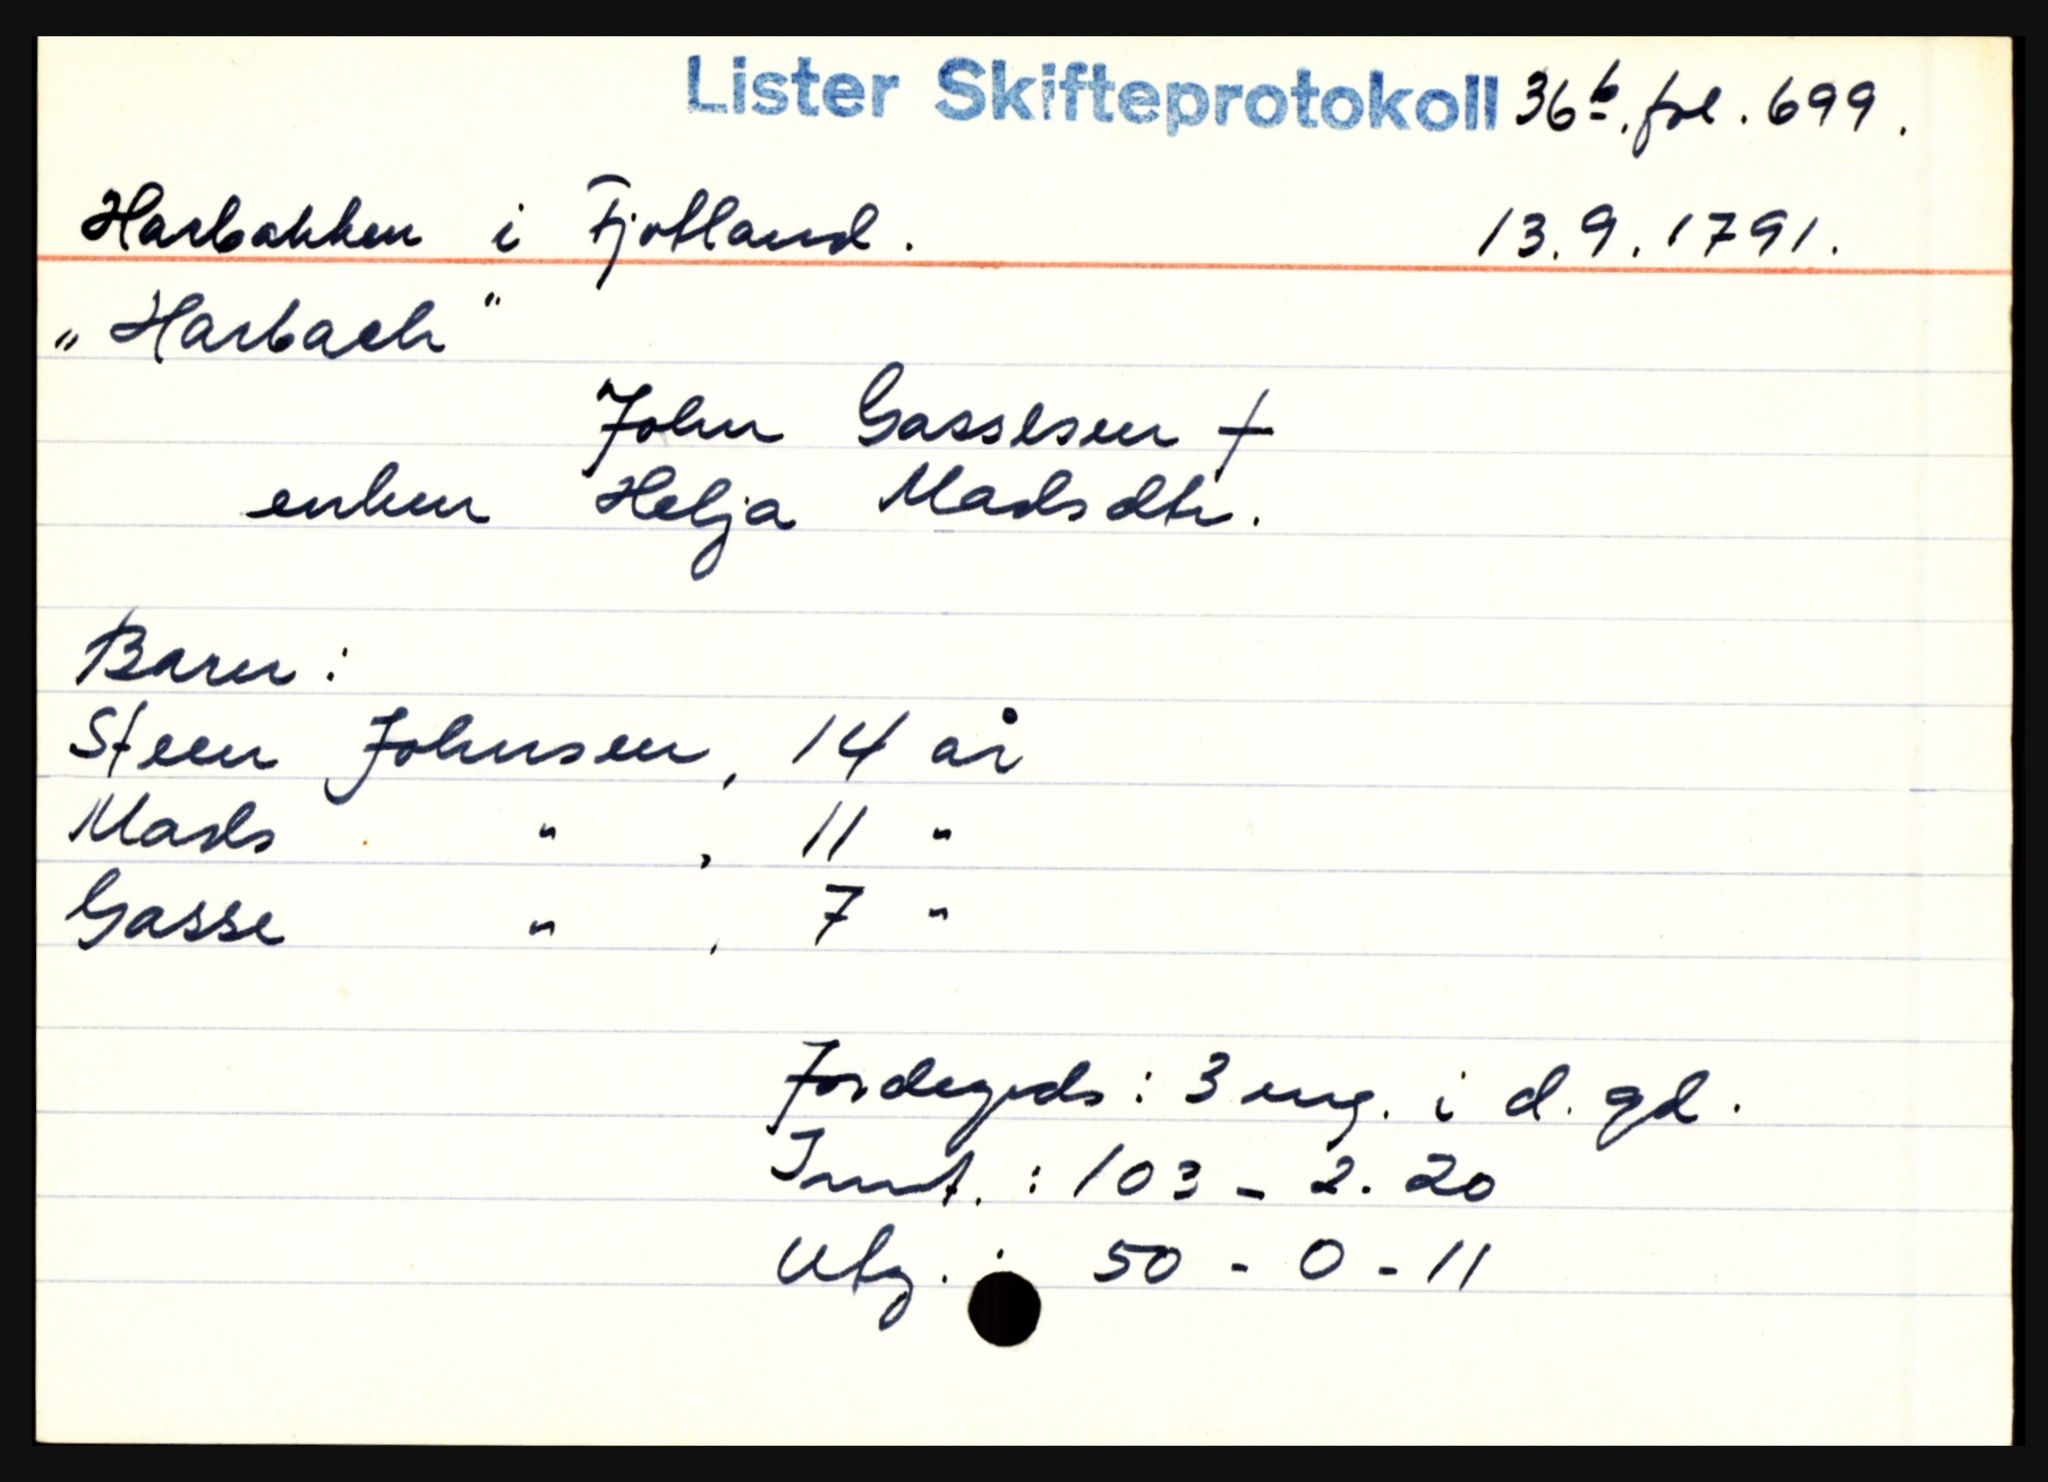 Lister Skifteprotokoll 36b, fol. 699.
Harbakken i Fjotland. 13.9.1791.
„Harbach"
John Gassesen †
enken Helja Madsdtr.
Barn:
Steen Johnsen, 14 år
Mads " , 11 "
Gasse " , 7 "
Jordegods: 3 eng. i d. gd.
Innt.: 103 - 2. 20
Utg.: 50 - 0 - 11